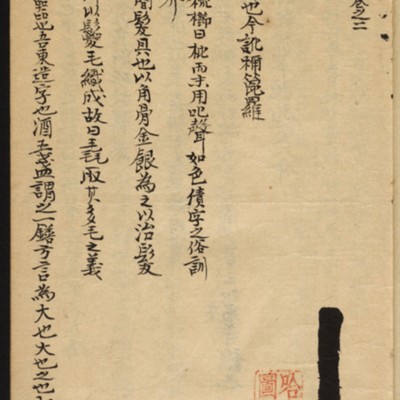 卷之三
也今訛桶箆羅
梳櫛曰枇而未用吡聲如色債字之俗訓
髮具也以角骨金銀為之以治髮
以髮毛織成故曰毛取其多毛之義
器也吾東造字也酒五盞謂之一鐥方言為大也大也之也
哈